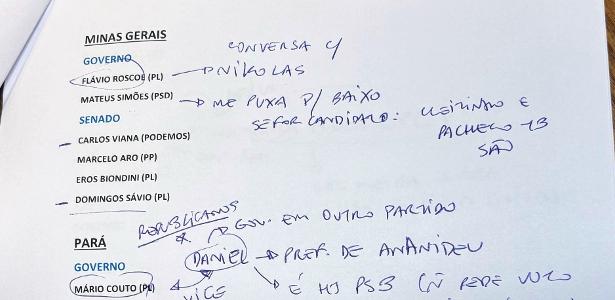 MINAS GERAIS
CONVERSA C/
GOVERNO
FLÁVIO ROSCOE (PL) NIKOLAS
MATEUS SIMÕES (PSD) ME PUXA P/ BAIXO
SENADO SE FOR CANDIDATO: CLEITINHO E
CARLOS VIANA (PODEMOS) PACHECO
MARCELO ARO (PP) SÃO
EROS BIONDINI (PL)
DOMINGOS SÁVIO (PL)
REPUBLICANOS GOV. EM OUTRO PARTIDO
PARÁ
DANIEL PREF. DE ANANIDEU
GOVERNO
MÁRIO COUTO (PL) VICE É HJ PSB (Ñ PEDE VOTO